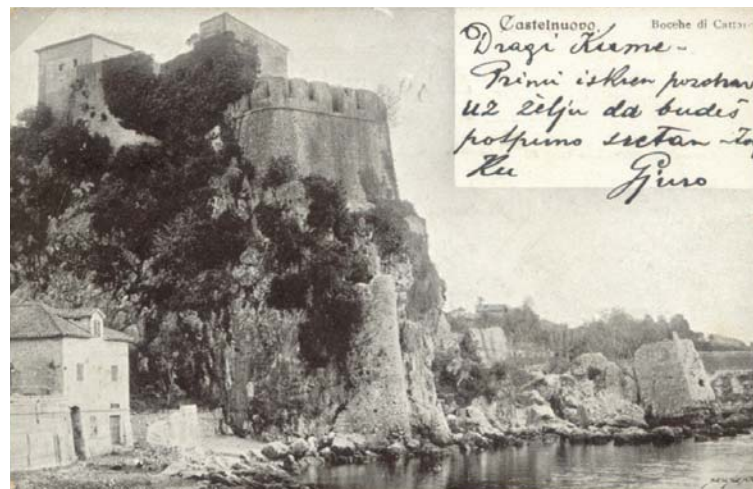 Castelnuovo Bocche di Cattar
Dragi Kume -
Primi iskren pozdrav
uz želju da budeš
potpuno sretan
Gjuro